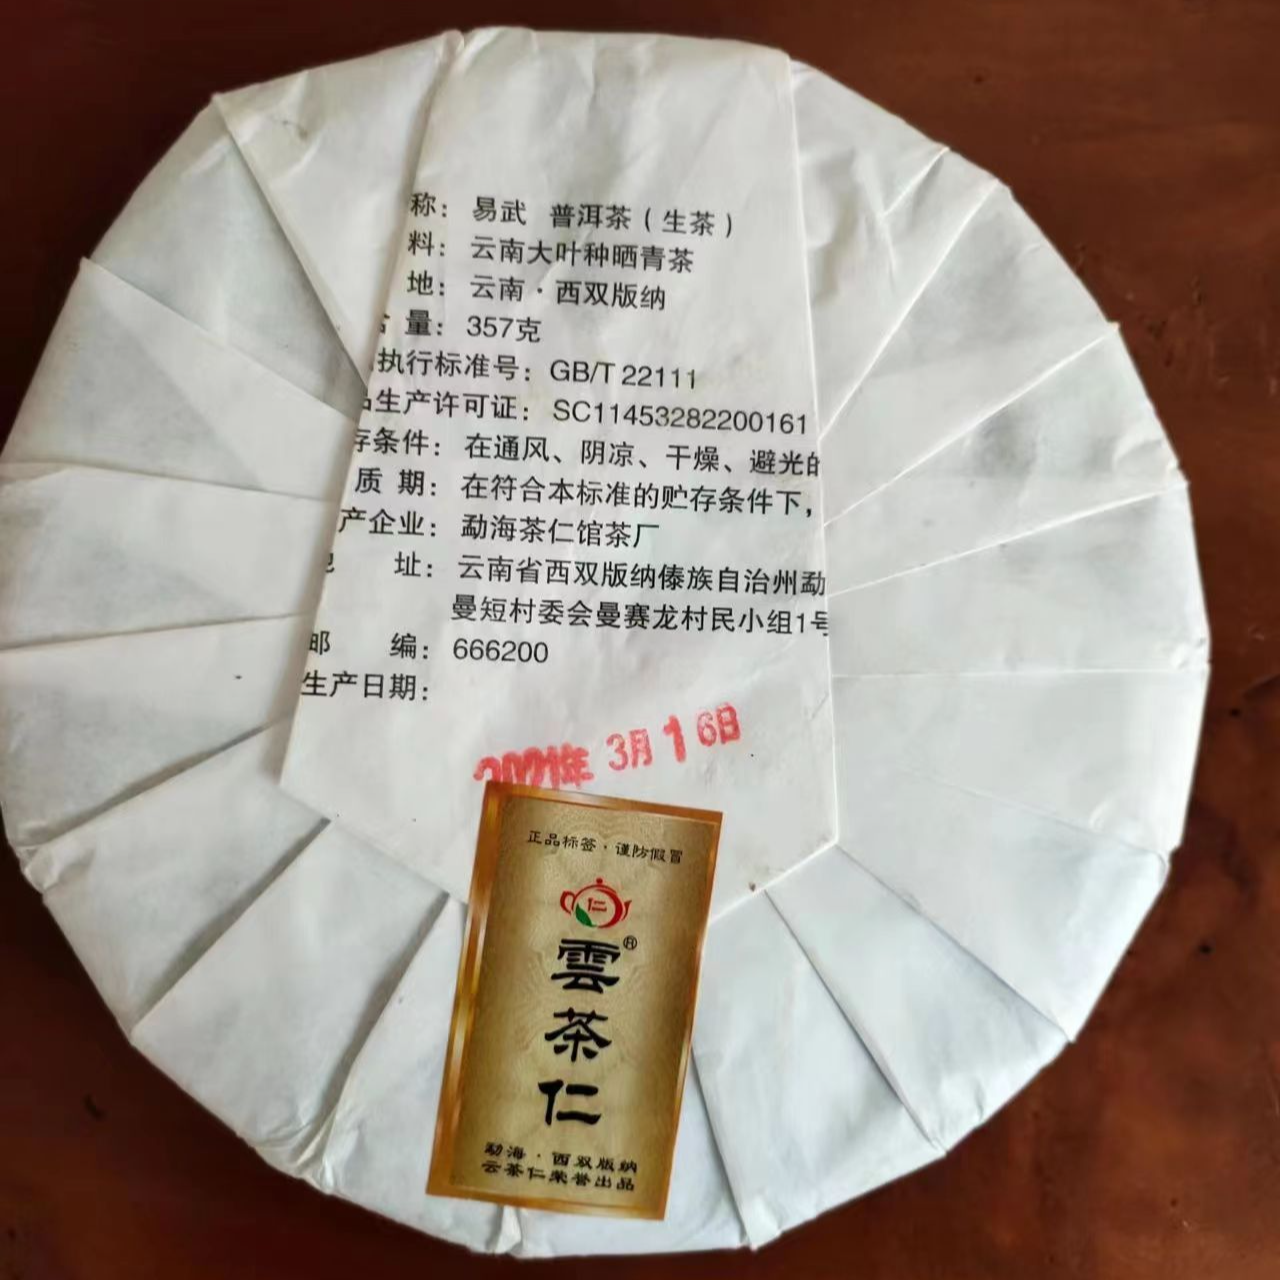 称： 易武 普洱茶（生茶）
料： 云南大叶种晒青茶
地： 云南·西双版纳
量： 357克
执行标准号： GB/T 22111
生产许可证： SC11453282200161
存条件： 在通风、阴凉、干燥、避光的
质 期： 在符合本标准的贮存条件下，
产企业： 勐海茶仁馆茶厂
址： 云南省西双版纳傣族自治州勐
曼短村委会曼赛龙村民小组1号
邮 编： 666200
生产日期：
2021年 3月16日
正品标签·谨防假冒
仁
雲茶仁®
勐海·西双版纳
云茶仁荣誉出品